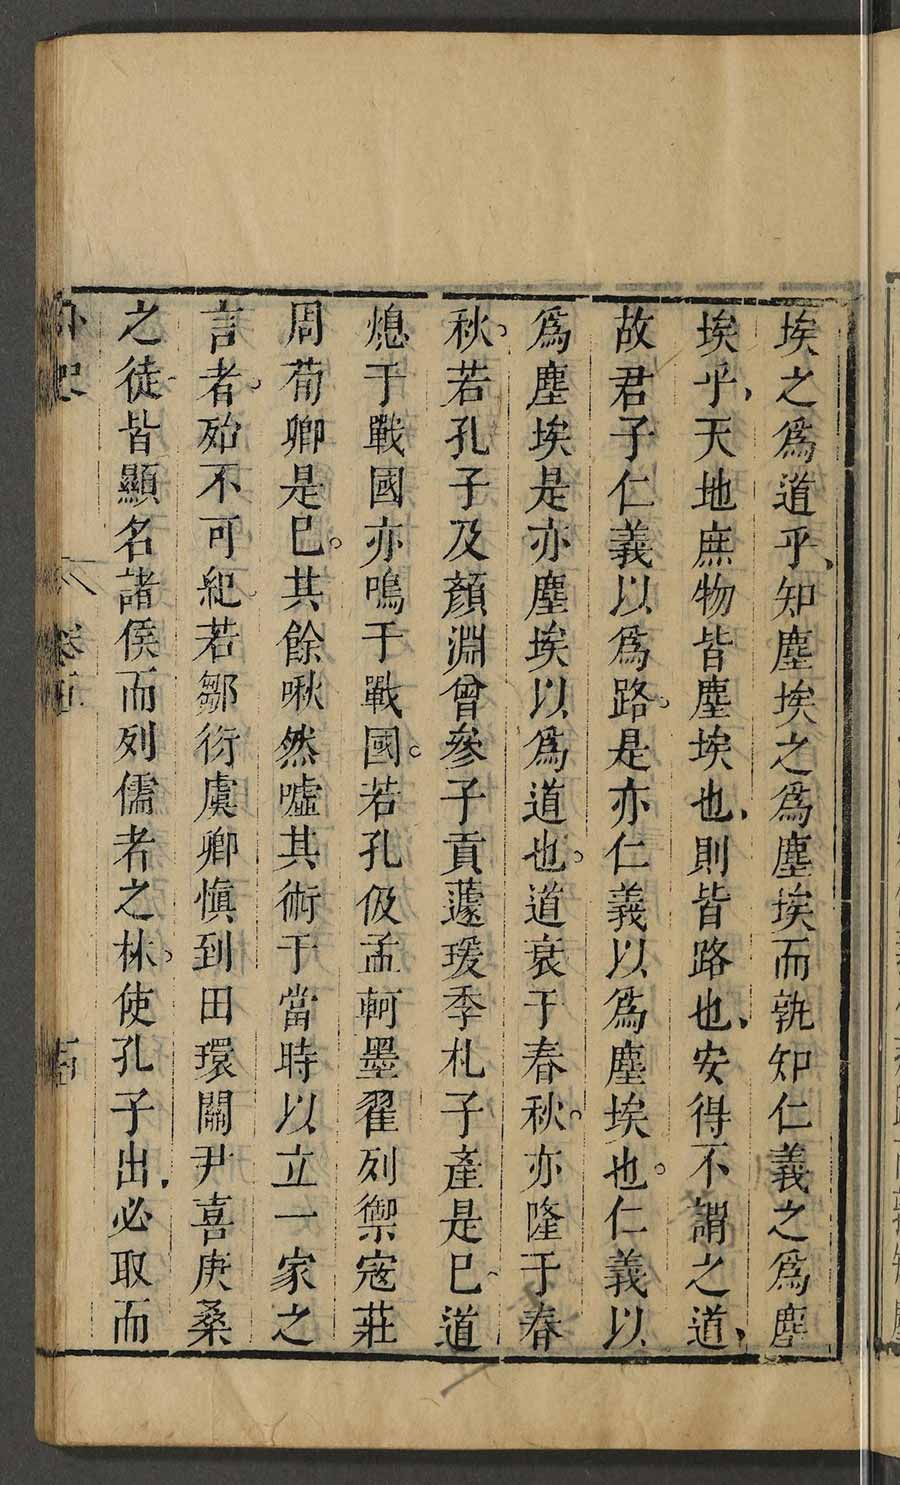 埃之爲道乎、知塵埃之爲塵埃而孰知仁義之爲塵
埃乎、天地庶物皆塵埃也、則皆路也、安得不謂之道、
故君子仁義以爲路。是亦仁義以爲塵埃也。仁義以
爲塵埃是亦塵埃以爲道也。道衰于春秋。亦隆于春
秋。若孔子及顏淵曾參子貢蘧瑗季札子產是巳、道
熄于戰國亦鳴于戰國。若孔伋孟軻墨翟列禦寇莊
周荀卿是巳。其餘啾然嘘其術于當時以立一家之
言者。殆不可紀。若鄒衍虞卿慎到田環關尹喜庚桑
之徒皆顯名諸侯而列儒者之林。使孔子出、必取而
卷五